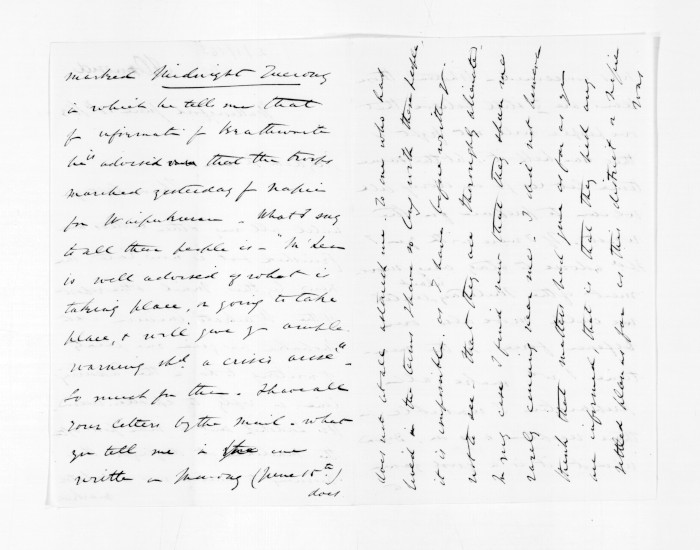 marked Midnight Tuesday
in which he tells me that
fr informatn fr Brathwaite
he is advised that the troops
marched yesterday fr Napier
for Waipukurau. What I say
to all these people is - "McLean
is well advised of what is
taking place, or going to take
place, & will give yo ample
warning shd a crisis arise" -
So much for them. I have all
your letters by the mail - what
you tell me in the one
written on Thursday (June 15th)
does
does not at all astonish me. To me who has
lived on the terms I have so long with these people
it is impossible, as I have before written yo
not to see that they are thoroughly alienated.
In my case I find now that they shun me
rarely coming near me. I did not however
think that matters had gone as far as yo
are informed, that is that they had any
settled plans as far as this district or Napier
was